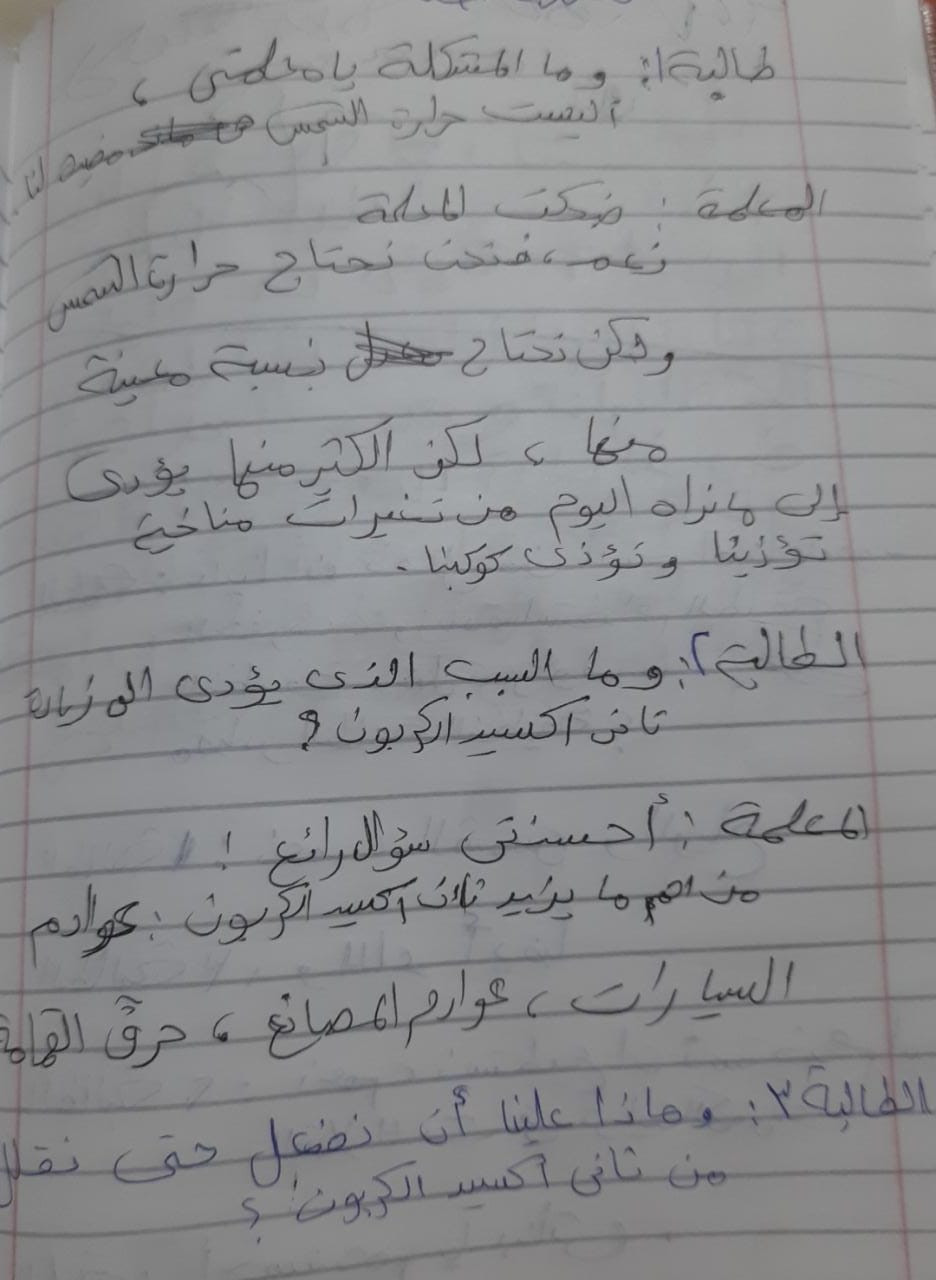 طالبة ١: وما المشكلة يا معلمتى ،
أليست حرارة الشمس مفيدة لنا
المعلمة : ضحكت المعلمة
نعم ، فنحن نحتاج حرارة الشمس
ولكن نحتاج نسبة معينة
منها ، لكن الكثير منها يؤدى
إلى ما نراه اليوم من تغيرات مناخية
تؤذينا وتؤذى كوكبنا .
الطالبة ٢: وما السبب الذى يؤدى الى زيادة
ثانى اكسيد الكربون ؟
المعلمة : أحسنتى سؤال رائع !
من اهم ما يزيد ثانى اكسيد الكربون : عوادم
السيارات ، عوادم المصانع ، حرق القمامة
الطالبة ٣: وماذا علينا أن نفعل حتى نقلل
من ثانى أكسيد الكربون ؟